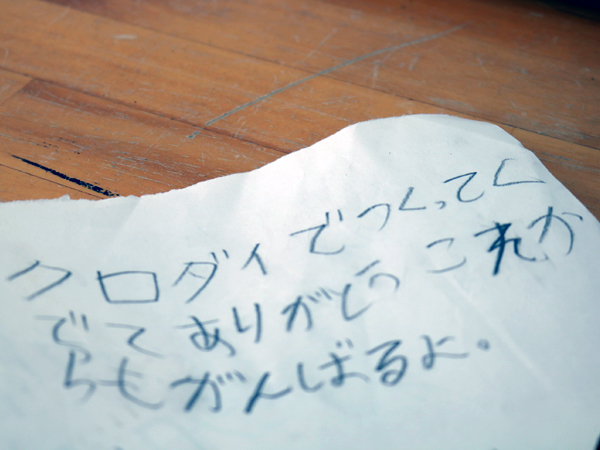 クロダイでつくってく
でてありがとうこれか
らもがんばるよ。